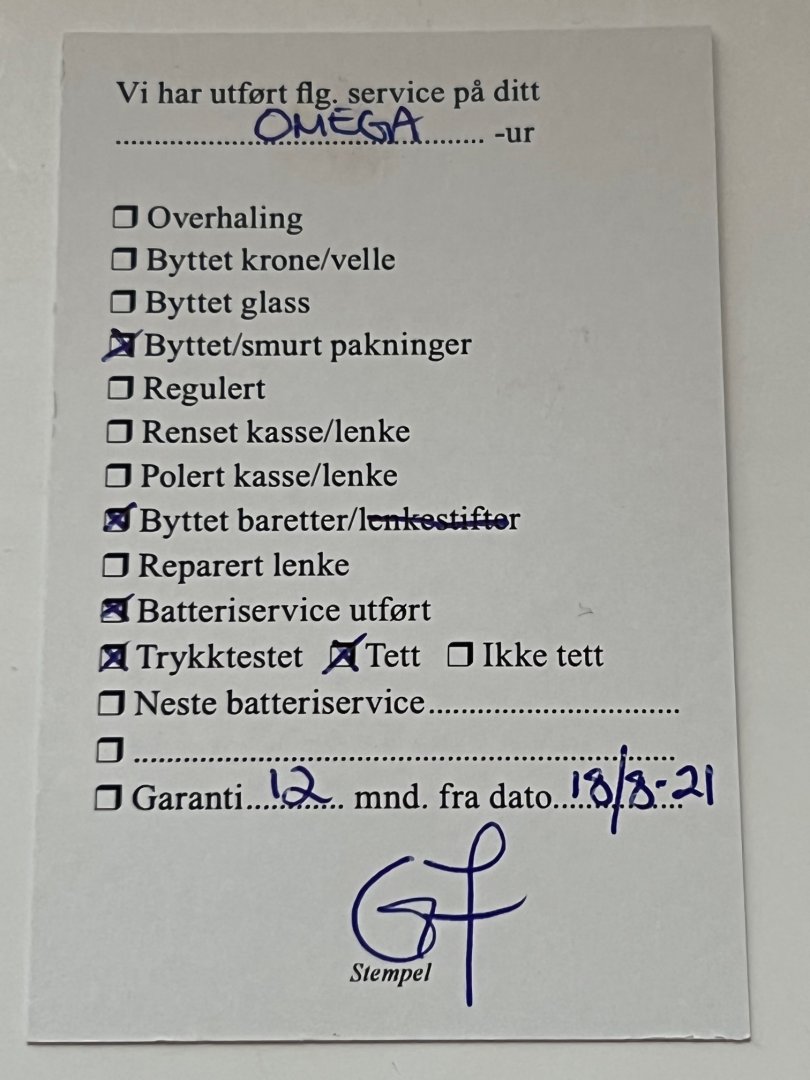 Vi har utført flg. service på ditt
OMEGA -ur
☐ Overhaling
☐ Byttet krone/velle
☐ Byttet glass
☒ Byttet/smurt pakninger
☐ Regulert
☐ Renset kasse/lenke
☐ Polert kasse/lenke
☒ Byttet baretter/lenkestifter
☐ Reparert lenke
☒ Batteriservice utført
☒ Trykktestet ☒ Tett ☐ Ikke tett
☐ Neste batteriservice..............................
☐ ..................................................................
☐ Garanti....12.... mnd. fra dato....18/8-21
GF
Stempel